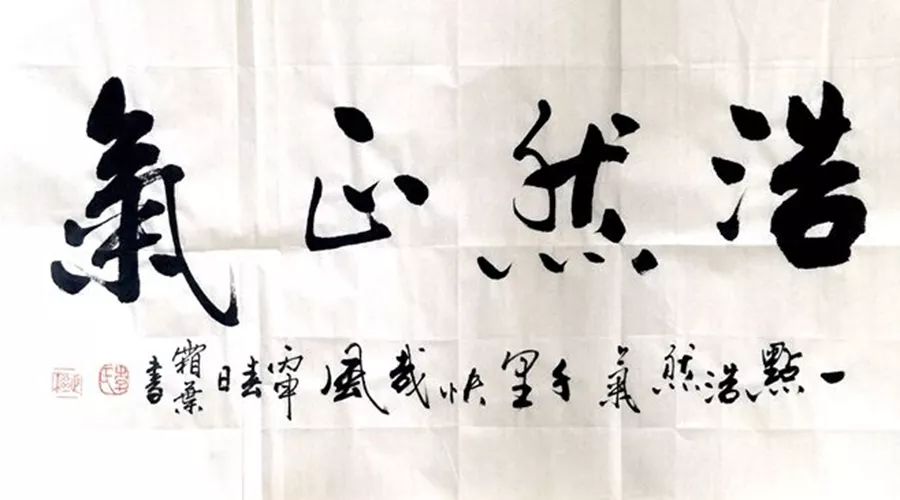 浩然正氣
一點浩然氣千里快哉風丙申春日霜葉書